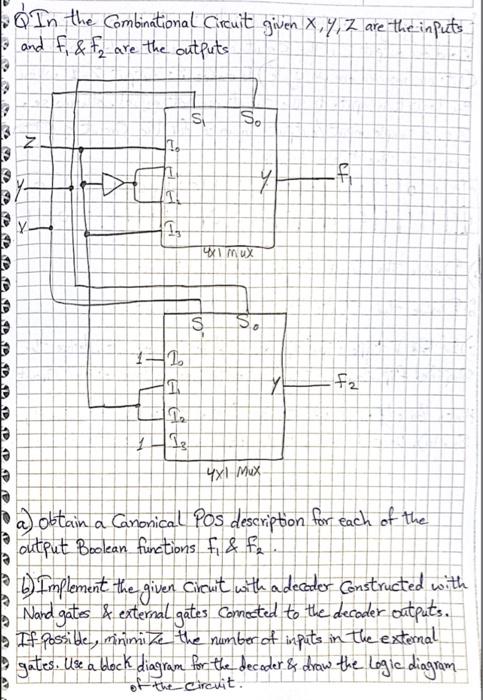 Q In the Combinational Circuit given X, Y, Z are the inputs
and f₁ & f₂ are the outputs
S₁ S₀
Z
I₀
I₁
Y
I₂
Y
f₁
X
I₃
4x1 mux
S₁ S₀
1 I₀
I₁
Y
f₂
I₂
1 I₃
4x1 Mux
a) obtain a Canonical POS description for each of the
output Boolean functions f₁ & f₂ .
b) Implement the given Circuit with a decoder Constructed with
Nand gates & external gates Connected to the decoder outputs.
If possible, minimize the number of inputs in the external
gates. Use a block diagram for the decoder & draw the logic diagram
of the circuit.